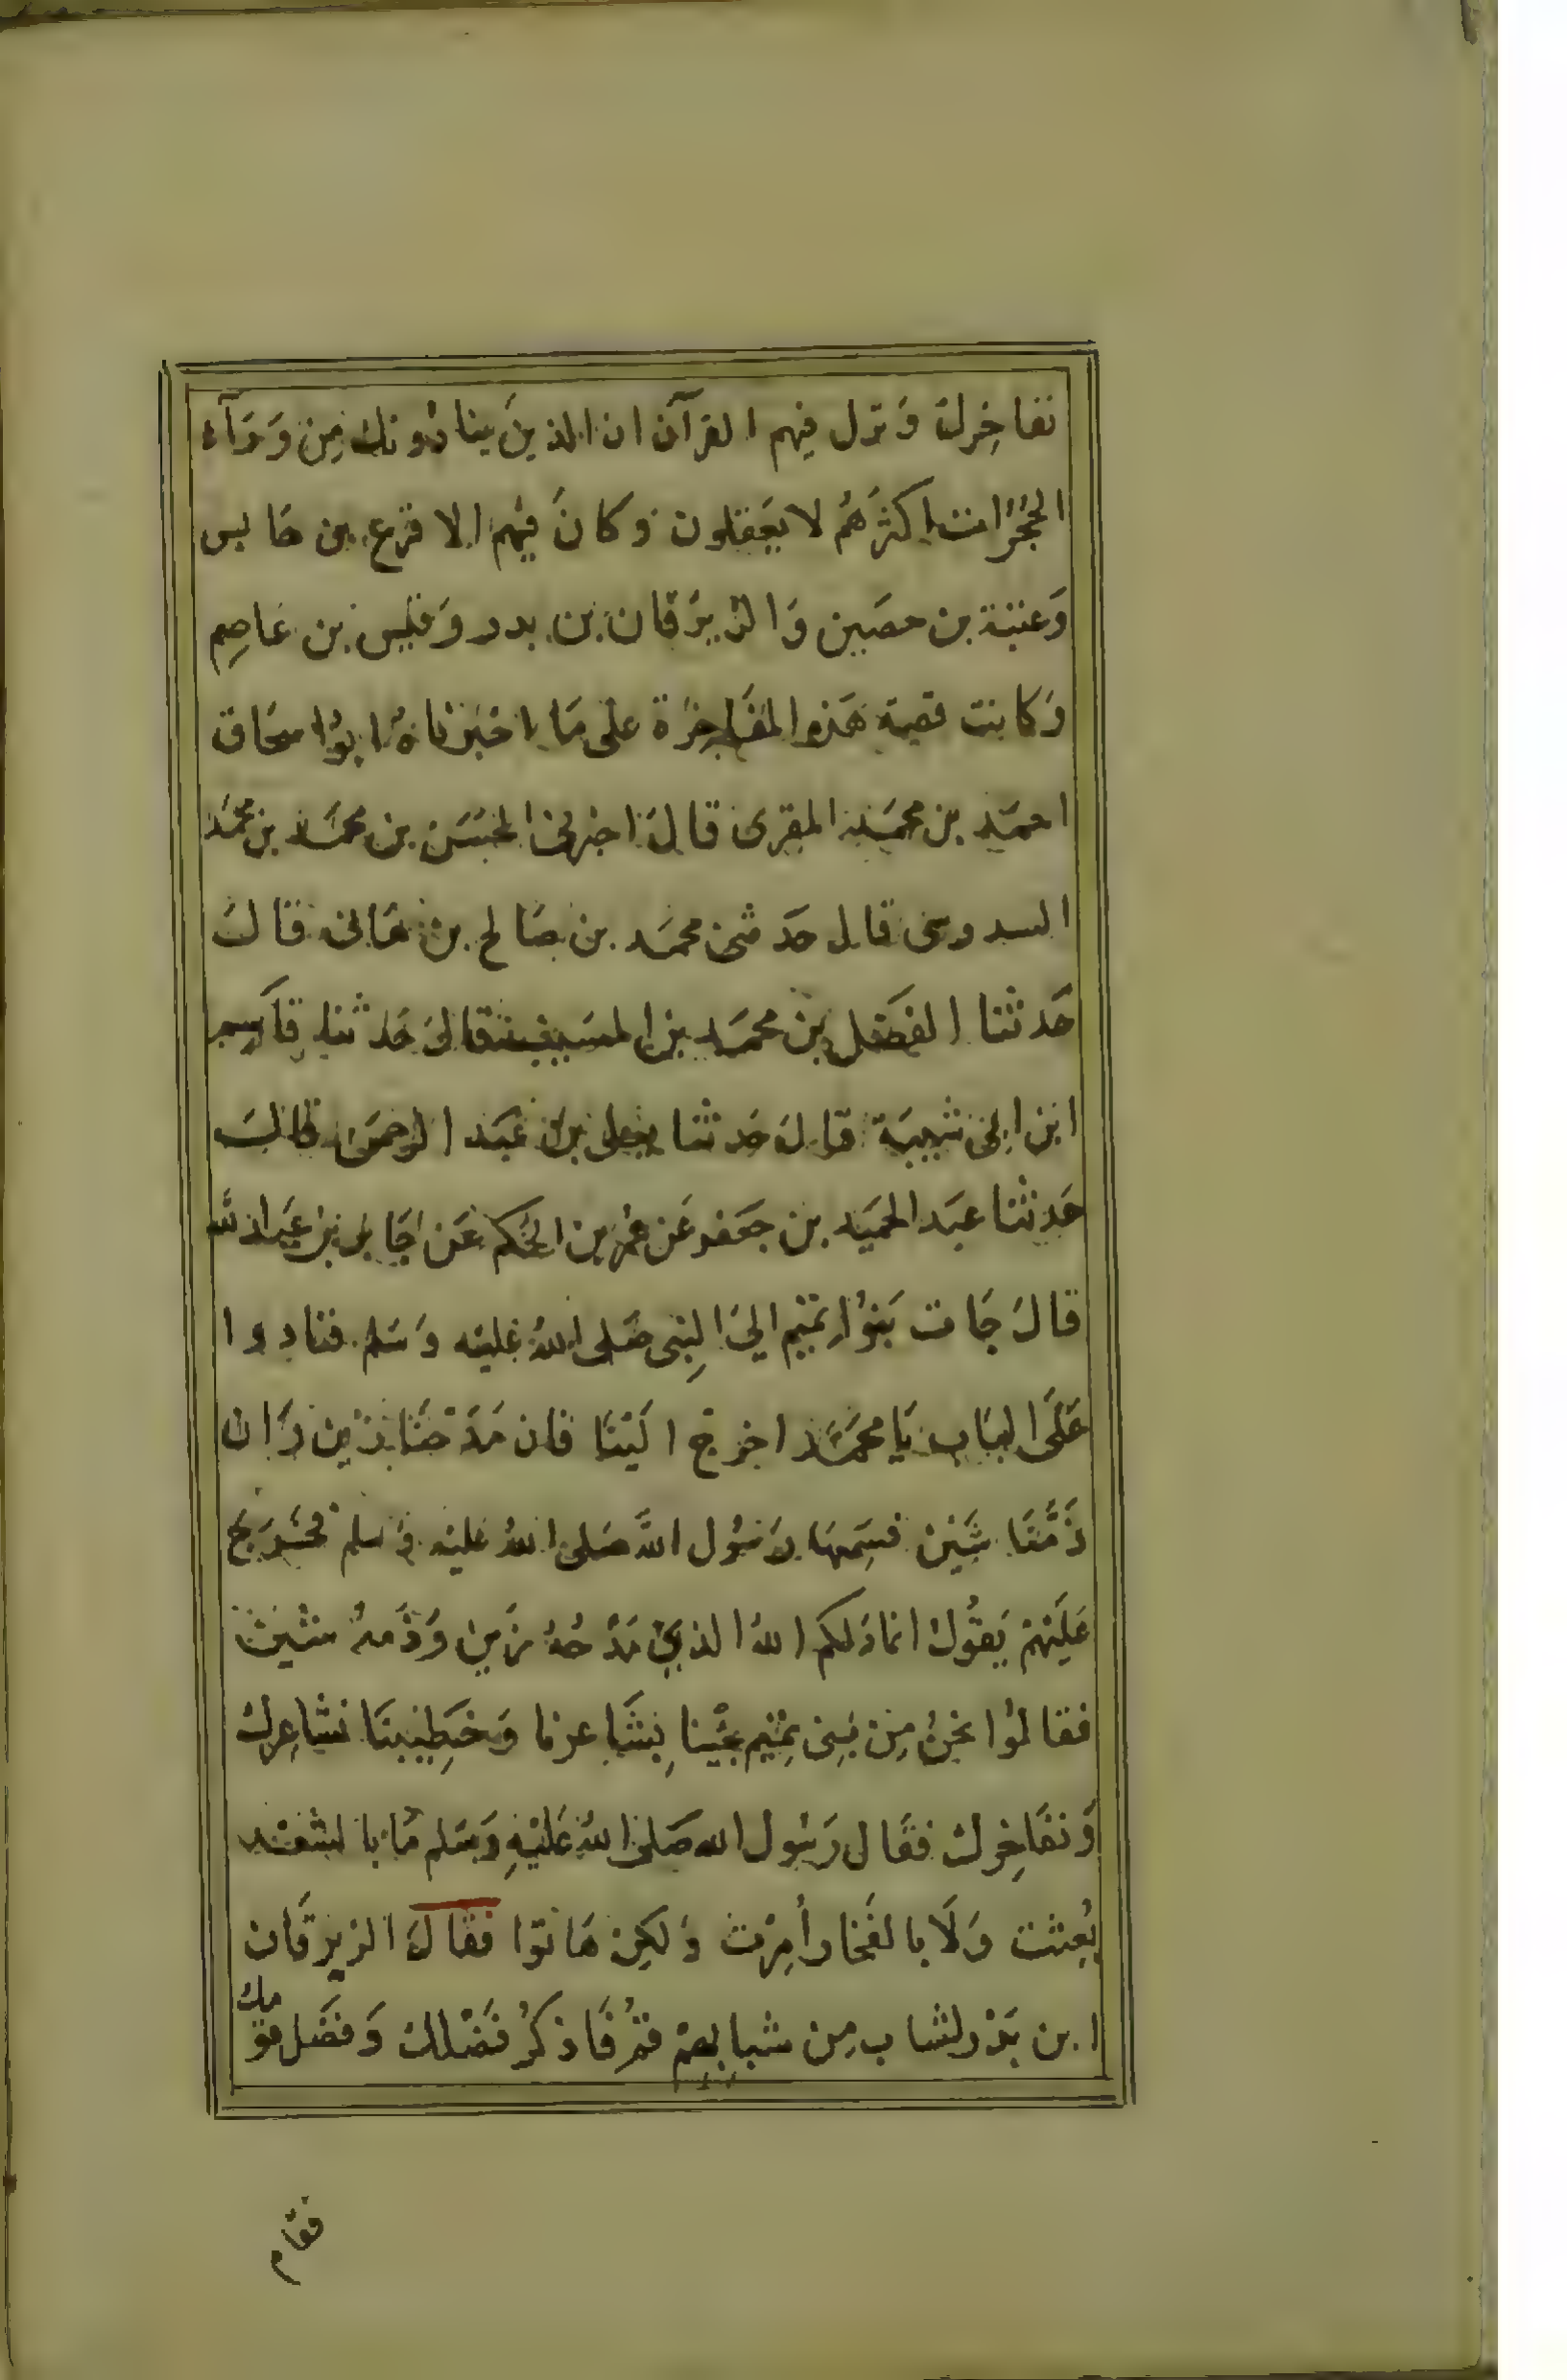 نفاخرك وَنزل فيهم القرآن ان الذينَ ينادُونك مِن وَرَآء
الحُجُرَات اكثرَهُم لا يعَقلون وَكانَ فيهم الاقرع بن حَابس
وَعيَينة بن حصَين وَالزبرقان بن بدر وَقيس بن عَاصِم
وَكانت قصة هَذه المفَاخرَة على مَا اخبرَناهُ ابوُا سحَاق
احمَد بن محمَد المقرى قالَ اخبرنى الحسَن بن محمَّد بن محمَّد
السدوسى قال حَدثنى محمَد بن صَالح بن هَانى قالَ
حَدثنا الفضَل بن محمَد بن المسَيب قالَ حَدثنا قاسِم
ابن ابِى شيبَة قالَ حَدثنا يعلى بن عَبَد الرحمَن قالَ
حَدثنا عبَد الحميَد بن جعَفر عَن عمر بن الحكم عَن جَابر بن عبَد الله
قالَ جَات بَنوُا تميم الىَ النِبى صَلى اللهُ عَليَه وَسَلم فنادوا
عَلَى البَاب يَا محمَّد اخرج اليَنَا فان مَدْحنَا زَين وَان
ذَمَّنَا شَين فسَمِعهَا رَسُول اللهَ صَلى اللهُ عَليَه وَسلم فخَرَجَ
عَليَهْم يَقوُل انما ذلكم اللهُ الذِي مَدْحُهُ زَين وَذَمهُ شين
فقالوُا نحنُ مِن بَنِى تميِم جئْينا بِشَاعرنا وَخَطِيبنَا نشاعِرك
وَنفَاخِرك فقَال رَسُول الله صَلى اللهُ عَليْهِ وَسَلم مَا بالشعَر
بُعِثت وَلَا بالفَخار أمِرْت وَلكِن هَاتوا فقالَ الزبرقان
ابن بَدْر لشاب مِن شبابِهِم قمُ فَاذكُر فَضْلك وَفضَل قوَمك
فقام